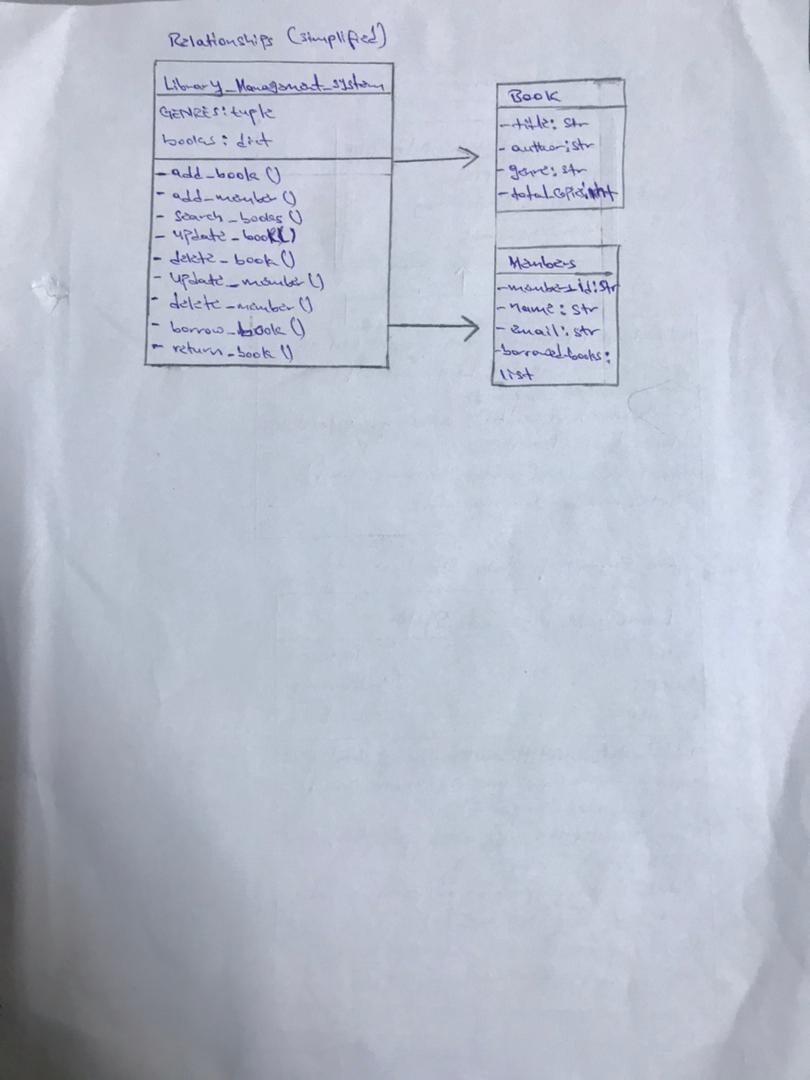 Relationships (simplified)
Library_Management_system
GENRES: tuple
books: dict
- add_book ()
- add_member ()
- search_books ()
- update_book()
- delete_book ()
- update_member ()
- delete_member ()
- borrow_book ()
- return_book ()
Book
- title: str
- author: str
- genre: str
- total_copies: int
Members
- members_id: str
- name: str
- email: str
- borrowed_books:
list